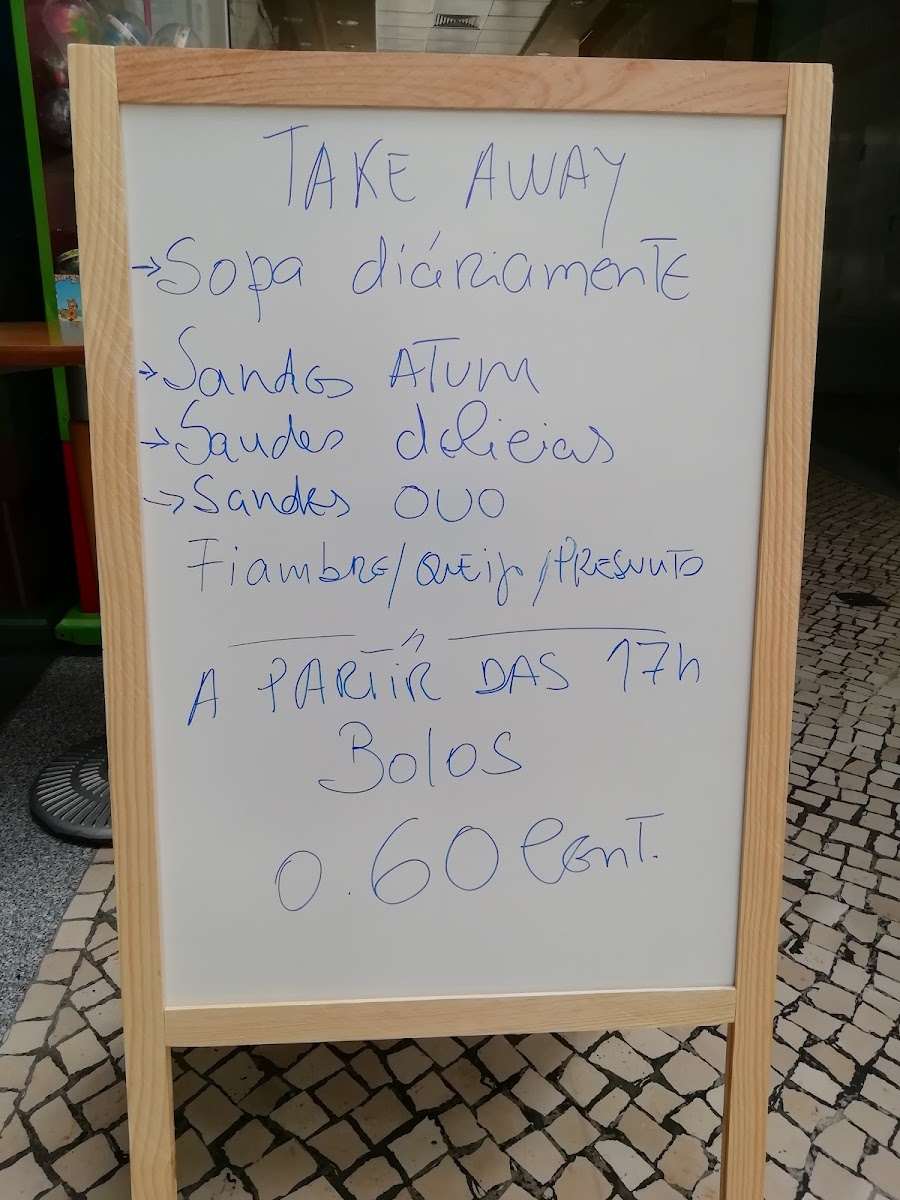 TAKE AWAY
→ Sopa diáriamente
→ Sandes ATUM
→ Sandes delicias
→ Sandes OVO
Fiambre/Queijo/PRESUNTO
A PARTIR DAS 17h
Bolos
0.60 Cent.